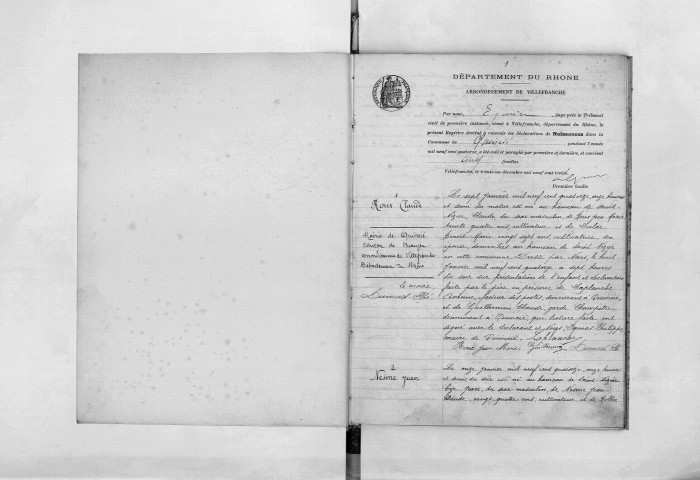 1
DÉPARTEMENT DU RHONE
ARRONDISSEMENT DE VILLEFRANCHE
Par nous, Juge près le Tribunal
civil de première instance, séant à Villefranche, département du Rhône, le
présent Registre destiné à recevoir les déclarations de Naissances dans la
Commune de Quincié pendant l'année
mil neuf cent quatorze, a été coté et paraphé par première et dernière, et contient
feuilles
Villefranche, le décembre mil neuf cent treize
Première feuille
1
Roux Claude
Mairie de Quincié
Canton de Beaujeu
arrondissement de Villefranche
Département du Rhône
Le maire
Le sept janvier mil neuf cent quatorze, onze heures
et demi du matin est né au hameau de Saint-
Claude du sexe masculin de Roux
trente quatre ans, cultivateur et de
Marie, vingt sept ans, cultivatrice son
épouse, domiciliés au hameau de Saint
en cette commune. Dressé par Nous, le huit
janvier mil neuf cent quatorze à sept heures
du soir sur présentation de l'enfant et déclaration
faite par le père en présence de Laplanche
facteur des postes, demeurant à Quincié
et de Guillermin Claude, garde champêtre
demeurant à Quincié, qui lecture faite ont
signé avec le déclarant et Nous, Philippe
maire de Quincié. Laplanche
Guillermin
2
Nesme Jean
Le onze janvier mil neuf cent quatorze, onze heures
et demi du soir est né au hameau de Saint
Jean, du sexe masculin de Nesme Jean
Claude, vingt quatre ans, cultivateur et de